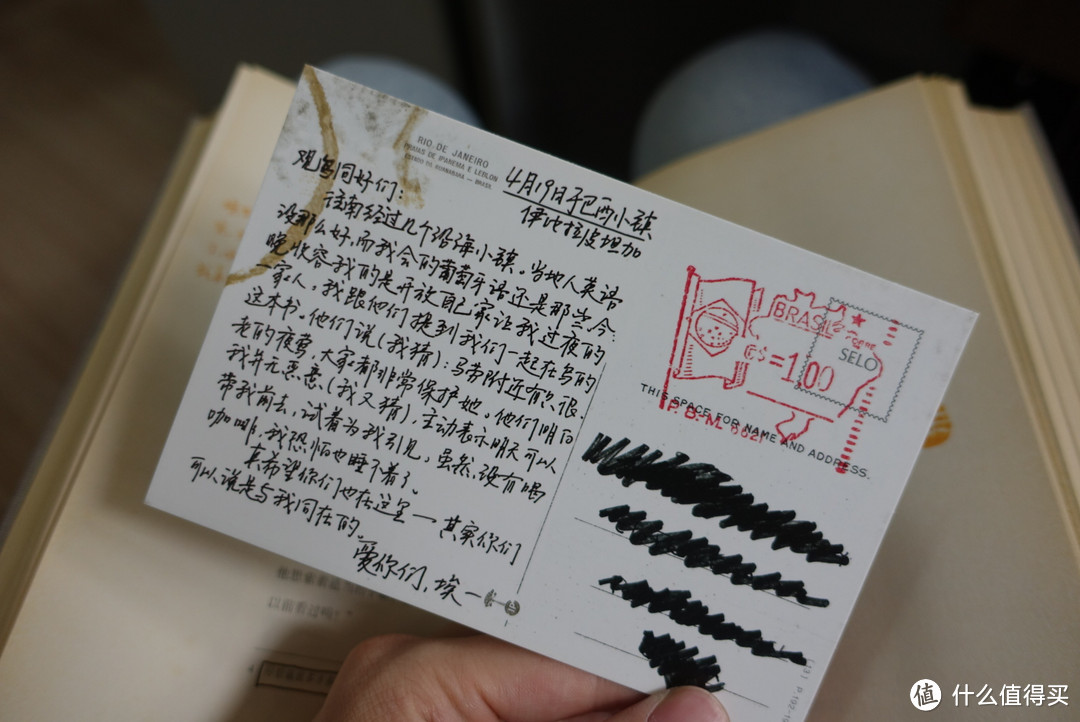 RIO DE JANEIRO
PRAIAS DE IPANEMA E LEBLON
ESTADO DA GUANABARA — BRASIL
4月19日于巴西小镇
伊比拉皮坦加
观鸟同好们:
往南经过几个沿海小镇。当地人英语
没那么好,而我会的葡萄牙语还是那些。今
晚收容我的是开放自己家让我过夜的
一家人,我跟他们提到我们一起在鸟的
这本书。他们说(我猜):马劳附近有只很
老的夜鹭,大家都非常保护她。他们明白
我并无恶意(我又猜),主动表示明天可以
带我前去,试着为我引见,虽然没有喝
咖啡,我恐怕也睡不着了。
真希望你们也在这里—其实你们
可以说是与我同在的。
爱你们,埃一
BRASIL
SELO
=1,00
THIS SPACE FOR NAME AND ADDRESS.
P.B.M.
以前看过吗?”
值 什么值得买